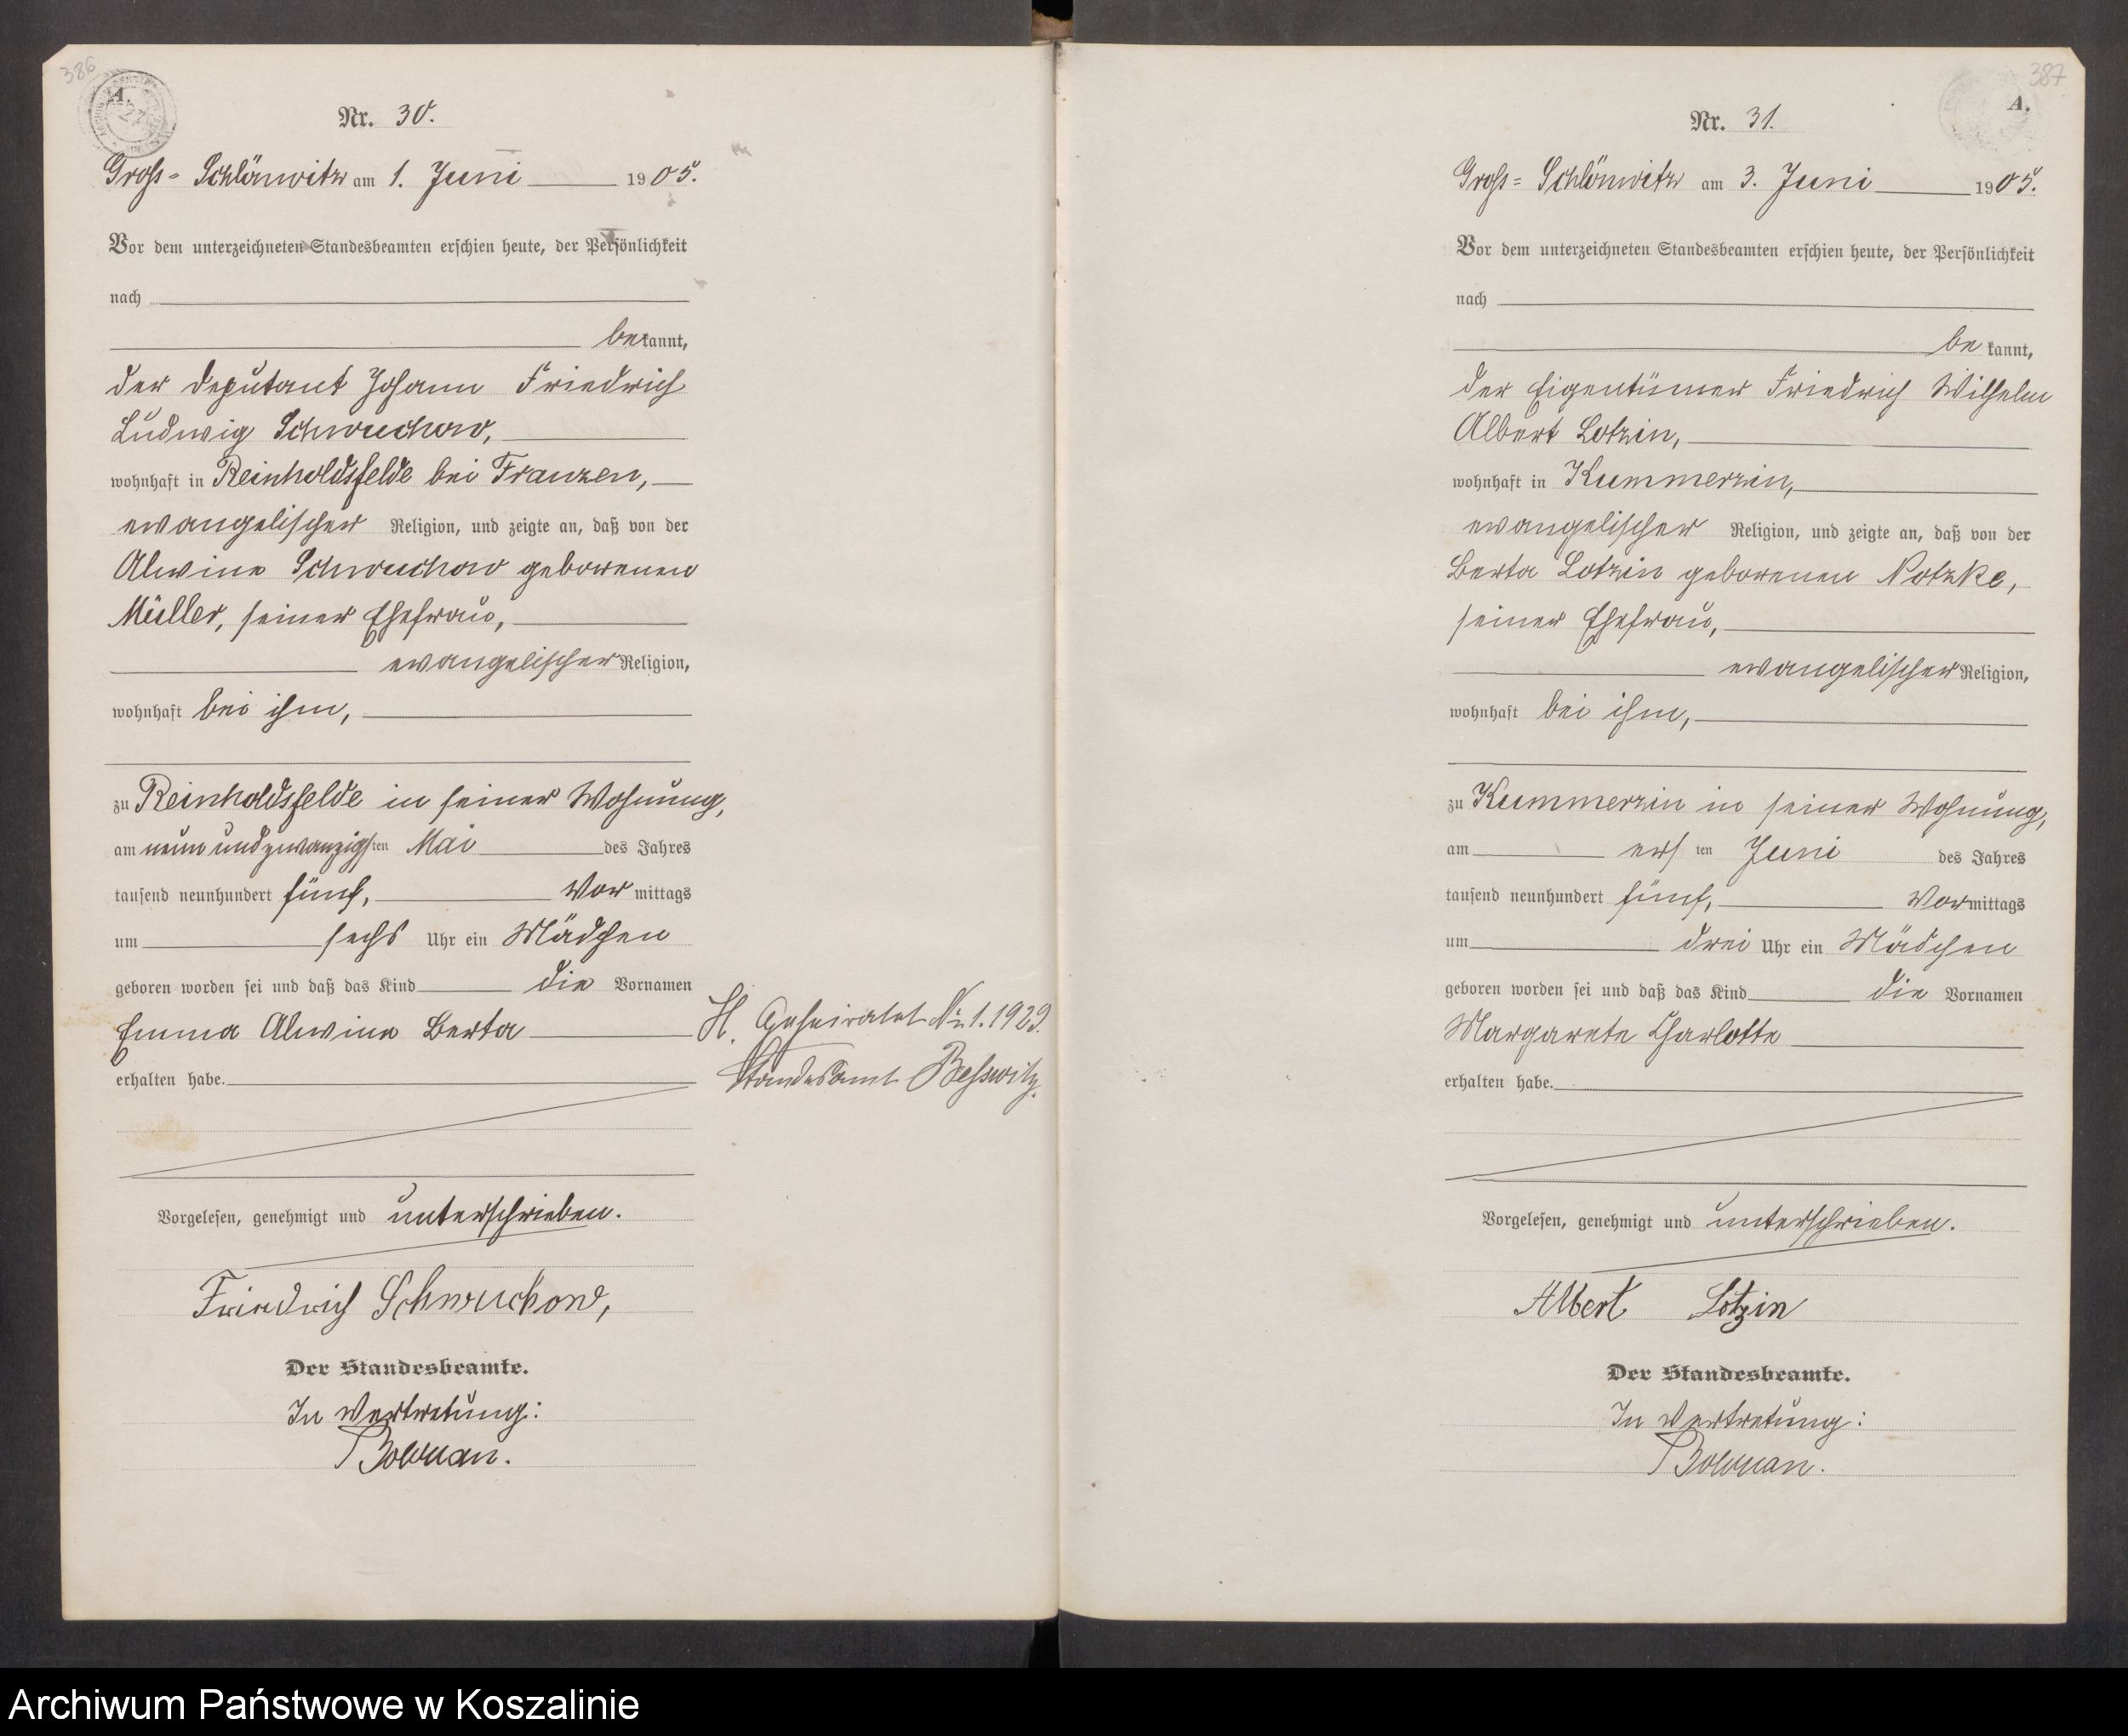 386
A.
Nr. 30.
Gross-Schlönwitz am 1. Juni 1905.
Vor dem unterzeichneten Standesbeamten erschien heute, der Persönlichkeit
nach
bekannt,
der Deputant Johann Friedrich
Ludwig Schwuchow,
wohnhaft in Reinholdsfelde bei Franzen,
evangelischer Religion, und zeigte an, daß von der
Alwine Schwuchow geborenen
Müller, seiner Ehefrau,
evangelischer Religion,
wohnhaft bei ihm,
zu Reinholdsfelde in seiner Wohnung,
am neunundzwanzigsten Mai des Jahres
tausend neunhundert fünf, Vormittags
um sechs Uhr ein Mädchen
geboren worden sei und daß das Kind die Vornamen
Emma Alwine Berta
erhalten habe.
H. Geheiratet Nr. 1. 1929.
Standesamt Besswitz.
Vorgelesen, genehmigt und unterschrieben.
Friedrich Schwuchow,
Der Standesbeamte.
In Vertretung:
387
A.
Nr. 31.
Gross=Schlönwitz am 3. Juni 1905.
Vor dem unterzeichneten Standesbeamten erschien heute, der Persönlichkeit
nach
bekannt,
der Eigentümer Friedrich Wilhelm
Albert Lotzin,
wohnhaft in Kummerzin,
evangelischer Religion, und zeigte an, daß von der
Berta Lotzin geborenen Notzke,
seiner Ehefrau,
evangelischer Religion,
wohnhaft bei ihm,
zu Kummerzin in seiner Wohnung,
am ersten Juni des Jahres
tausend neunhundert fünf, Vormittags
um drei Uhr ein Mädchen
geboren worden sei und daß das Kind die Vornamen
Margarete Charlotte
erhalten habe.
Vorgelesen, genehmigt und unterschrieben.
Albert Lotzin
Der Standesbeamte.
In Vertretung:
Archiwum Państwowe w Koszalinie